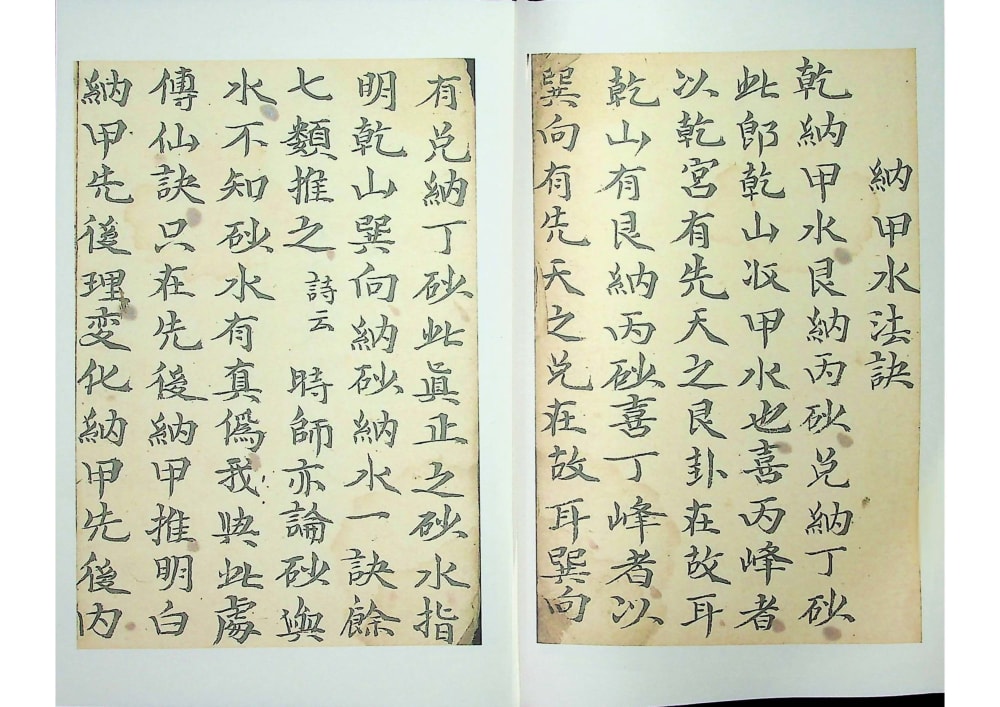 納甲水法訣
乾納甲水艮納丙砂兑納丁砂
此郎乾山収甲水也喜丙峰者
以乾宮有先天之艮卦在故耳
乾山有艮納丙砂喜丁峰者以
巽向有先天之兑在故耳巽向
有兑納丁砂此眞正之砂水指
明乾山巽向納砂納水一訣餘
七類推之 詩云 時師亦論砂與
水不知砂水有真偽我與此處
傳仙訣只在先後納甲推明白
納甲先後理変化納甲先後内